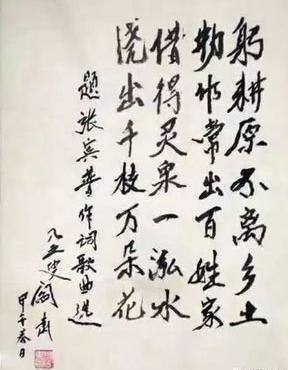 躬耕原不离乡土
勤作常出百姓家
借得灵泉一泓水
浇出千枝万朵花
题张宾華作词歌曲选
八五叟阎肃
甲午春日